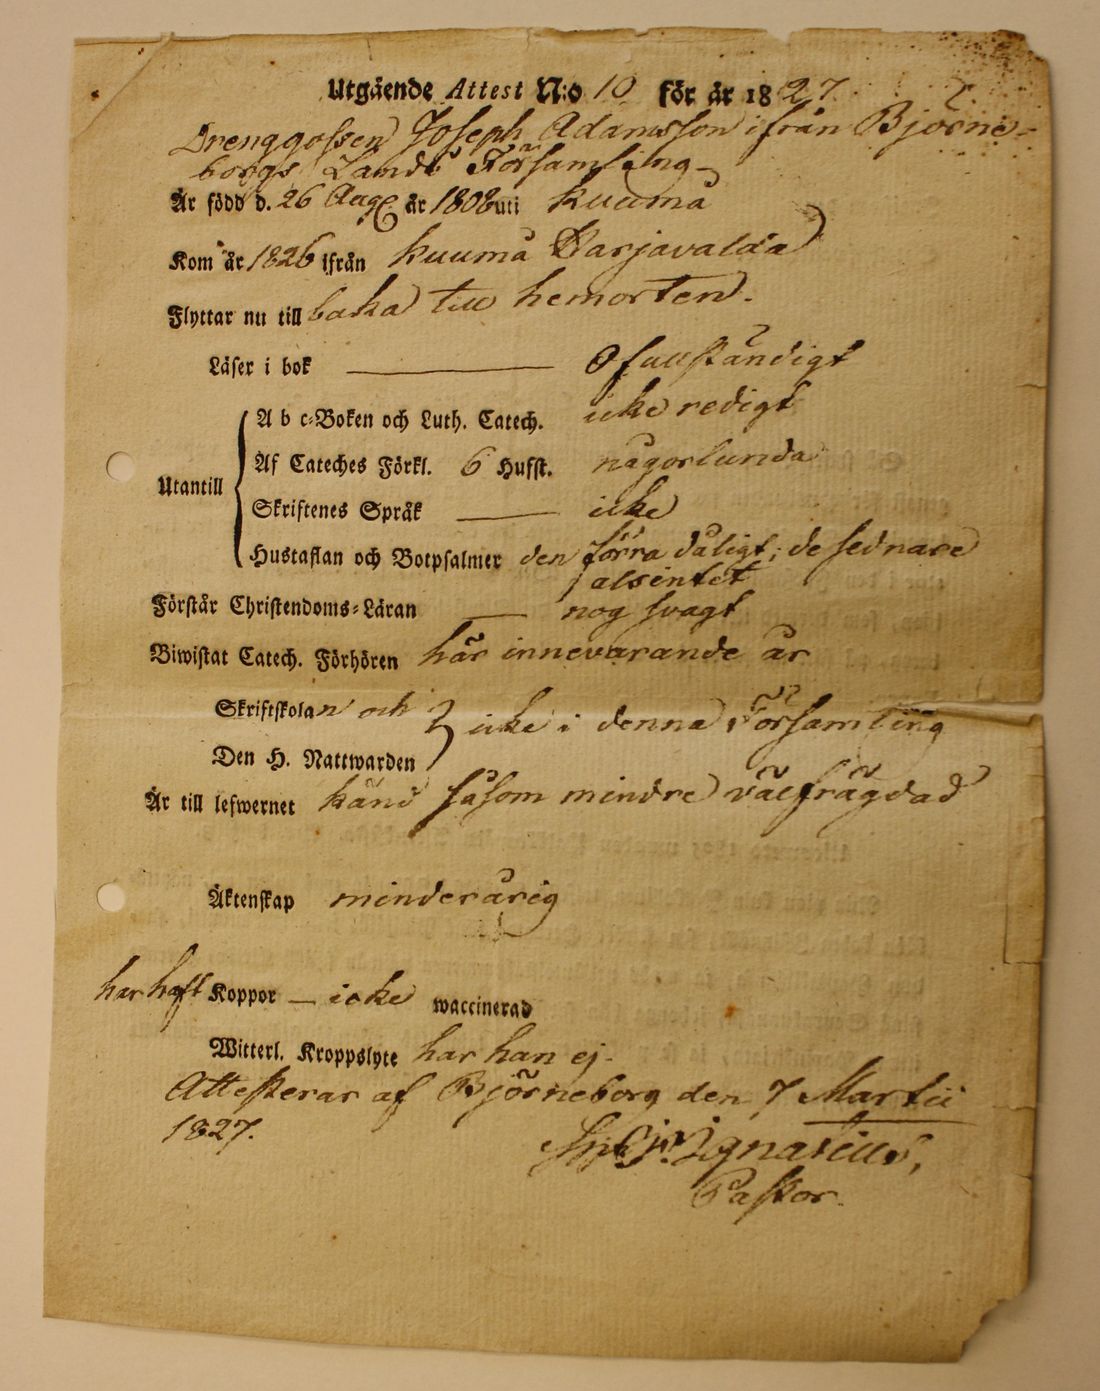 Utgående Attest N:o 10 för år 1827.
Drenggossen Joseph Adamsson ifrån Björne-
borgs Lands Församling
Är född d. 26 Aug. år 1808 uti Kuumå
Kom år 1826 ifrån Kuumå Harjavalda
Flyttar nu till baka till hemorten.
Läser i bok — Ofullständigt
A b c-Boken och Luth. Catech. icke redigt
Utantill Af Cateches Förkl. 6 Hufst. någorlunda
Skriftenes Språk — icke
Hustaflan och Botpsalmer den förra dåligt; de sednare
alsintet
Förstår Christendoms-Läran — nog svagt
Biwistat Catech. Förhören här innevarande år
Skriftskolan och } icke i denna Församling
Den H. Nattwarden
Är till lefwernet känd såsom mindre välfrägdad
Äktenskap minderårig
har haft Koppor — icke waccinerad
Witterl. Kroppslyte har han ej.
Attesterar af Björneborg den 7 Martii
1827.
Ignatius,
Pastor.